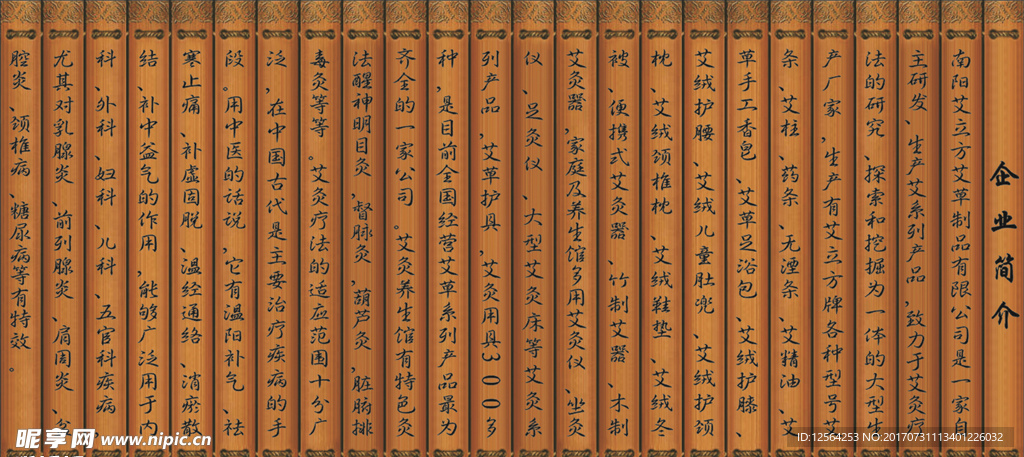 企业简介
南阳艾立方艾草制品有限公司是一家自
主研发、生产艾系列产品,致力于艾灸疗
法的研究、探索和挖掘为一体的大型生
产厂家,生产有艾立方牌各种型号艾
条、艾柱、药条、无湮条、艾精油、艾
草手工香皂、艾草足浴包、艾绒护膝、
艾绒护腰、艾绒儿童肚兜、艾绒护颈
枕、艾绒颈椎枕、艾绒鞋垫、艾绒冬
被、便携式艾灸器、竹制艾器、木制
艾灸器,家庭及养生馆多用艾灸仪、坐灸
仪、足灸仪、大型艾灸床等艾灸系
列产品,艾草护具,艾灸用具300多
种,是目前全国经营艾草系列产品最为
齐全的一家公司。艾灸养生馆有特色灸
法醒神明目灸,督脉灸,葫芦灸,脏腑排
毒灸等等。艾灸疗法的适应范围十分广
泛,在中国古代是主要治疗疾病的手
段。用中医的话说,它有温阳补气、祛
寒止痛、补虚固脱、温经通络、消瘀散
结、补中益气的作用,能够广泛用于内
科、外科、妇科、儿科、五官科疾病
尤其对乳腺炎、前列腺炎、肩周炎、盆
腔炎、颈椎病、糖尿病等有特效。
昵享网 www.nipic.cn
ID:12564253 NO:20170731113401226032